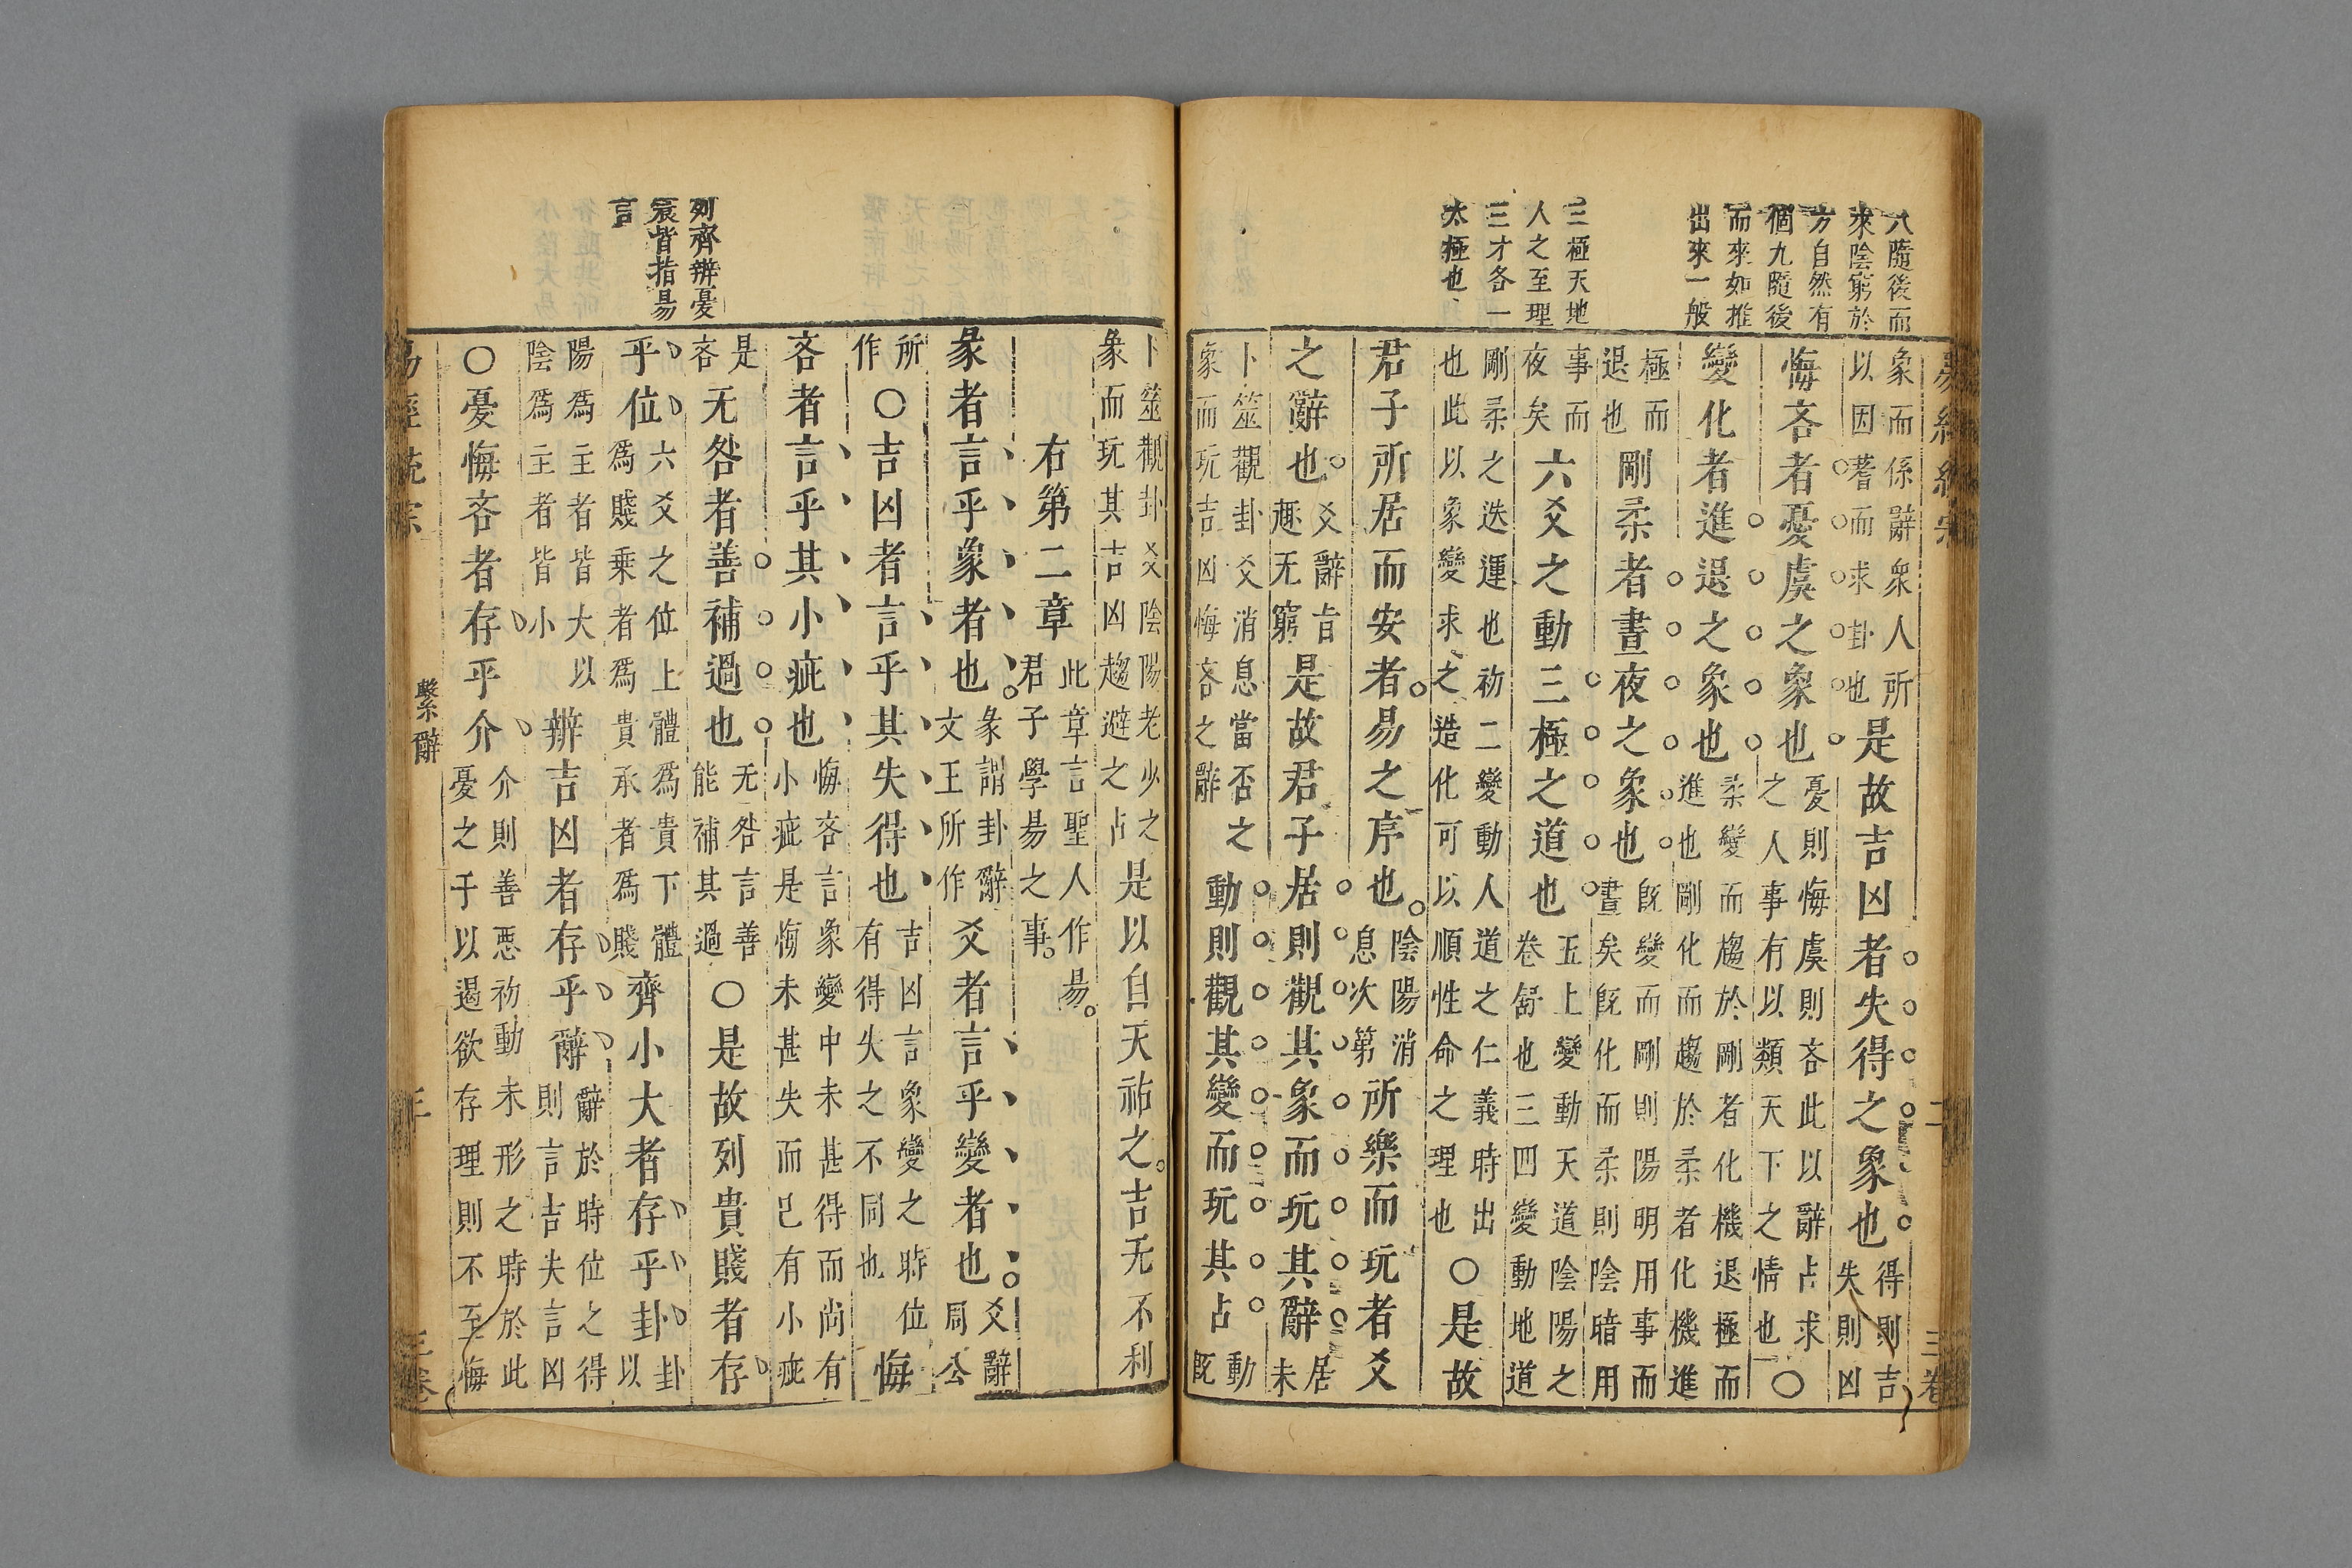 八隨後而
來陰窮於
方自然有
個九隨後
而來如推
出來一般
三極天地
人之至理
三才各一
太極也
三卷
象而係辭衆人所以因蓍而求卦也是故吉凶者失得之象也得則吉失則凶
悔吝者憂虞之象也憂則悔虞則吝此以辭占求之人事有以類天下之情也○
變化者進退之象也柔變而趨於剛者化機退極而進也剛化而趨於柔者化機進
極而退也剛柔者晝夜之象也旣變而剛則陽明用事而晝矣旣化而柔則陰暗用
事而夜矣六爻之動三極之道也五上變動天道陰陽之卷舒也三四變動地道
剛柔之迭運也初二變動人道之仁義時出也此以象變求之造化可以順性命之理也○是故
君子所居而安者易之序也陰陽消息次第所樂而玩者爻
之辭也爻辭旨趣无窮是故君子居則觀其象而玩其辭居未
卜筮觀卦爻消息當否之象而玩吉凶悔吝之辭動則觀其變而玩其占動旣
卜筮觀卦爻陰陽老少之象而玩其吉凶趨避之占是以自天祐之吉无不利
右第二章此章言聖人作易君子學易之事
彖者言乎象者也彖謂卦辭文王所作爻者言乎變者也爻辭周公
所作○吉凶者言乎其失得也吉凶言象變之時位有得失之不同也悔
吝者言乎其小疵也悔吝言象變中未甚得而尚有小疵是悔未甚失而已有小疵
是吝无咎者善補過也无咎言善能補其過○是故列貴賤者存
列齊辨憂
震皆指易
言
乎位六爻之位上體爲貴下體爲賤乘者爲貴承者爲賤齊小大者存乎卦卦以
陽爲主者皆大以陰爲主者皆小辨吉凶者存乎辭辭於時位之得則言吉失言凶
○憂悔吝者存乎介介則善惡初動未形之時於此憂之于以遏欲存理則不至悔
易經 繫辭 三卷